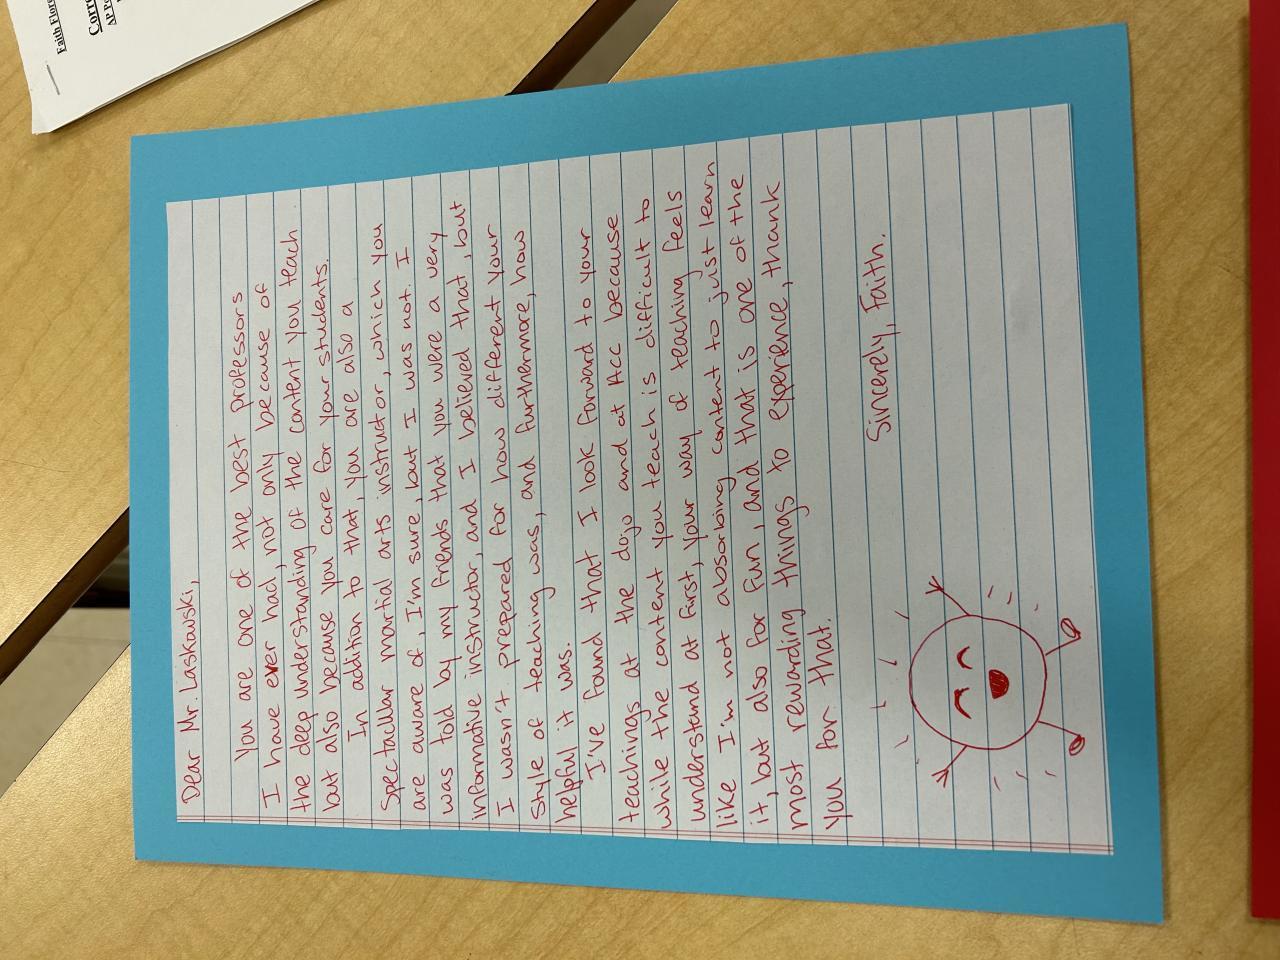 Faith Flor
Corr
AP P
Dear Mr. Laskowski,
You are one of the best professors
I have ever had, not only because of
the deep understanding of the content you teach
but also because you care for your students.
In addition to that, you are also a
Spectacular martial arts instructor, which you
are aware of, I'm sure, but I was not. I
was told by my friends that you were a very
informative instructor, and I believed that, but
I wasn't prepared for how different your
Style of teaching was, and furthermore, how
helpful it was.
I've found that I look forward to your
teachings at the dojo and at ACC because
while the content you teach is difficult to
understand at first, your way of teaching feels
like I'm not absorbing content to just learn
it, but also for fun, and that is one of the
most rewarding things to experience, thank
you for that.
Sincerely, Faith.